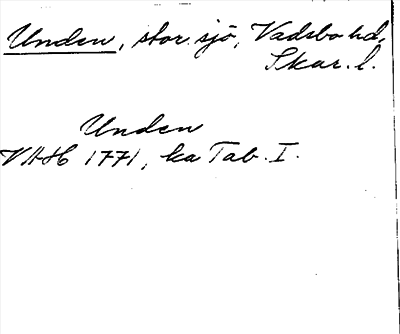 Unden, stor sjö, Vadsbo hd,
Skar. l.
Unden
VAH 1771, ka Tab. I.